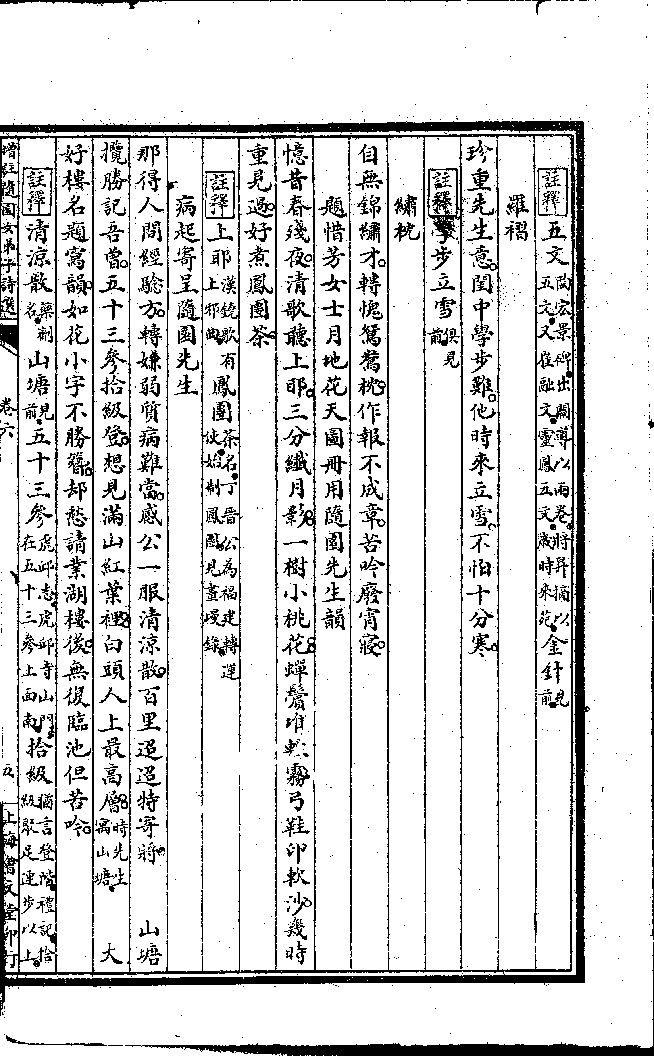 註釋 五文 尚宏景碑出關尊以兩卷將昇摘以五文又崔融文靈鳳五文歲時來苑 金針 見前
羅褶
珍重先生意閨中學步難他時來立雪不怕十分寒
註釋 學步立雪 俱見前
繡枕
自無錦繡才轉愧鴛鴦枕作報不成章苦吟廢宵寢
題惜芳女士月地花天圖冊用隨園先生韻
憶昔春殘夜清歌聽上耶三分纖月影一樹小桃花蟬鬢堆輕霧弓鞋印軟沙幾時
重見過好煮鳳團茶
註釋 上耶 漢鐃歌有上邪曲 鳳團 茶名丁晉公為福建轉運使始制鳳團見畫墁錄
病起寄呈隨園先生
那得人間經驗方轉嫌弱質病難當感公一服清涼散百里迢迢特寄將 山塘
攬勝記吾曾五十三參拾級登想見滿山紅葉裡白頭人上最高層 時先生寓山塘 大
好樓名題寓韻如花小字不勝簪却愁請業湖樓後無復臨池但苦吟
註釋 清涼散 藥劑名 山塘 見前 五十三參 虎邱志虎邱寺山門在五十三參上面南 拾級 猶言登階禮記拾級聚足連步以上
增註隨園女弟子詩選 卷六 五 上海會文堂印行